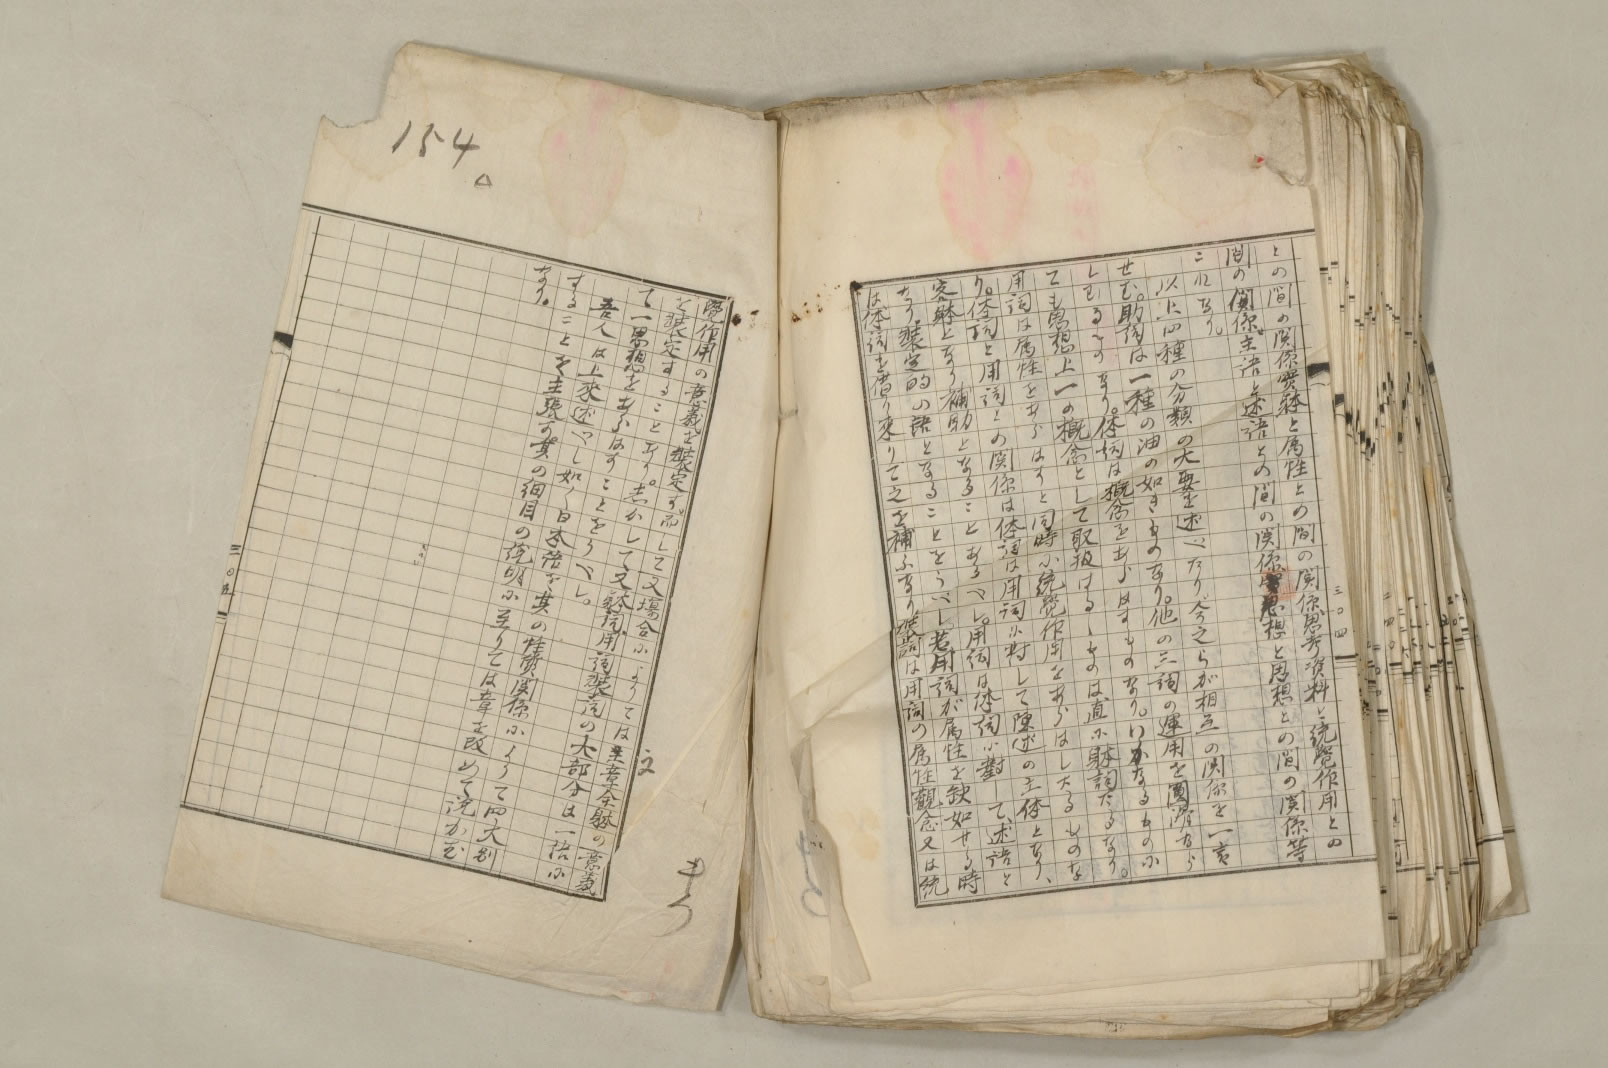 との間の関係實躰と属性との間の関係思考資料と統覺作用との
間の関係主語と述語との間の関係思想と思想との間の関係等
これなり。
以上四種の分類の大要を述べたり今之らが相互の関係を一言
せむ。助詞は一種の油の如きものなり。他の三詞の運用を圓滑なら
しむるものなり。体詞は概念をあらはすものなり。いかなるものに
ても思想上一の概念として取扱はるゝものは直に躰詞たるなり。
用詞は属性をあらはすと同時に統覺作用をあらはしたるものな
り。体詞と用詞との関係は体詞は用詞に対して陳述の主体となり、
客躰となり補助となることあるべし。用詞は体詞に對して、述語と
なり装定的の語となることをうべし。若用詞が属性を缺如せる時
は体詞を借り来りて之を補ふなり。は用詞の属性観念又は統
三〇四
154
△
覺作用の意義を装定す。而して又場合によりては文章全躰の意義
を装定することあり。
て一思想をあらはすことをうべし。
吾人は上来述べし如く日本語を其の性質、関係によりて四大別
することを主張す。其の細目の説明に至りては章を改めて説かむ
なり。
三〇五